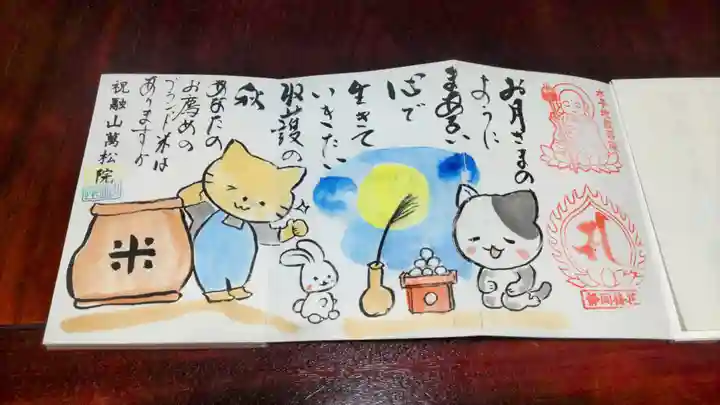 お月さまの
ように
まあるい
心で
生きて
いきたい
収穫の
秋
あなたの
お薦めの
ブランド米は
ありますか
祝融山萬松院
米